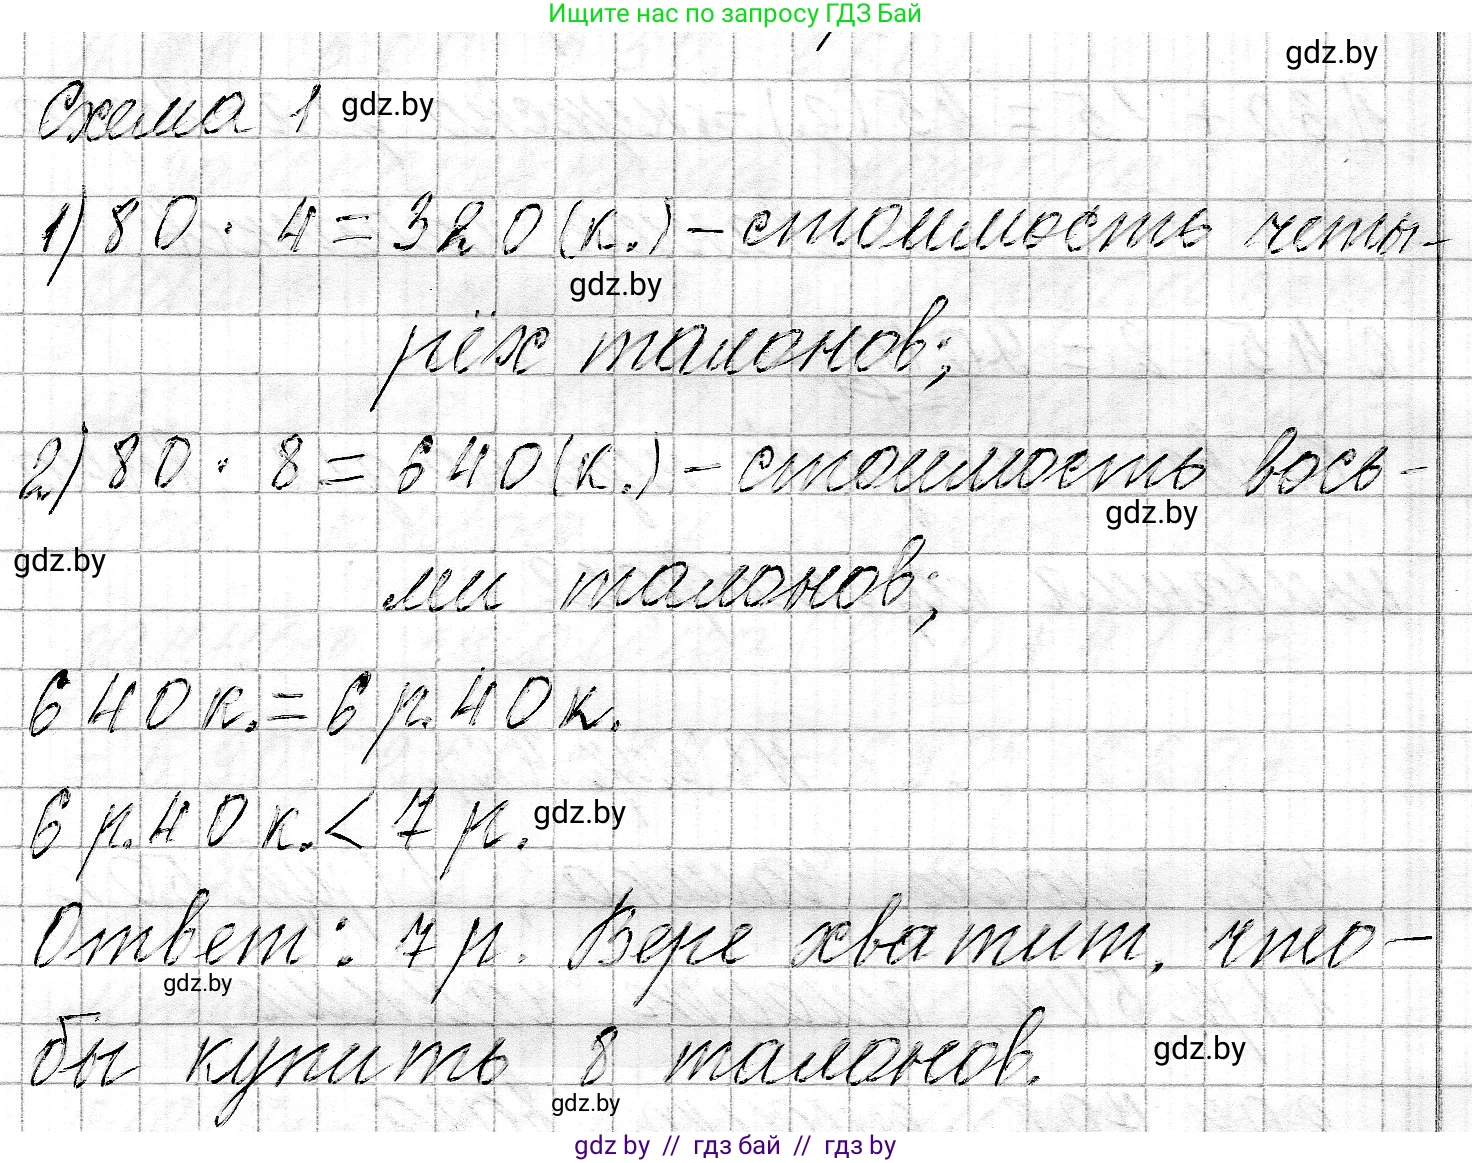 Ищите нас по запросу ГДЗ Бай
gdz.by
Схема 1 gdz.by
1) 80 · 4 = 320 (к.) – стоимость четы-
gdz.by
рёх талонов;
2) 80 · 8 = 640 (к.) – стоимость вось-
gdz.by
gdz.by
ми талонов;
640 к. = 6 р. 40 к.
6 р. 40 к. < 7 р. gdz.by
Ответ: 7 р. Вере хватит, что-
gdz.by
бы купить 8 талонов.
gdz.by
gdz.by
gdz by // гдз бай // гдз by